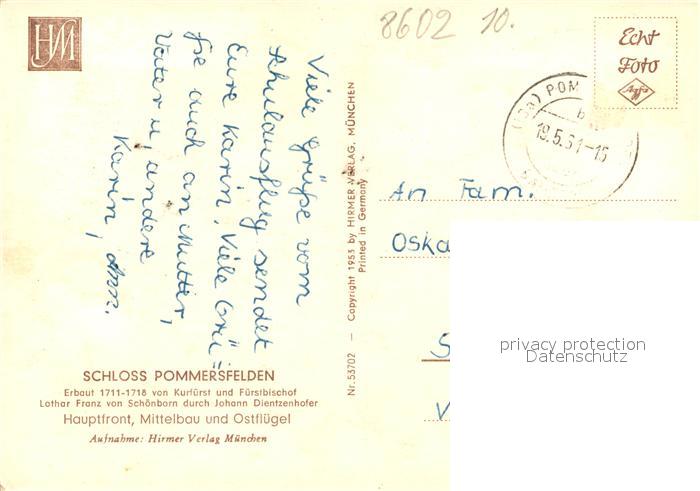 HM
8602 10.
Echt
Foto
Agfa
POM
19.5.61-15
Viele Grüße vom
Schulausflug sendet
Eure Karin. Viele Grü-
ße auch an Mutter,
Vater u, andere
Karin,
An Fam.
Oska
S
V
privacy protection
Datenschutz
Nr. 53702 — Copyright 1953 by HIRMER VERLAG, MÜNCHEN
Printed in Germany
SCHLOSS POMMERSFELDEN
Erbaut 1711-1718 von Kurfürst und Fürstbischof
Lothar Franz von Schönborn durch Johann Dientzenhofer
Hauptfront, Mittelbau und Ostflügel
Aufnahme: Hirmer Verlag München